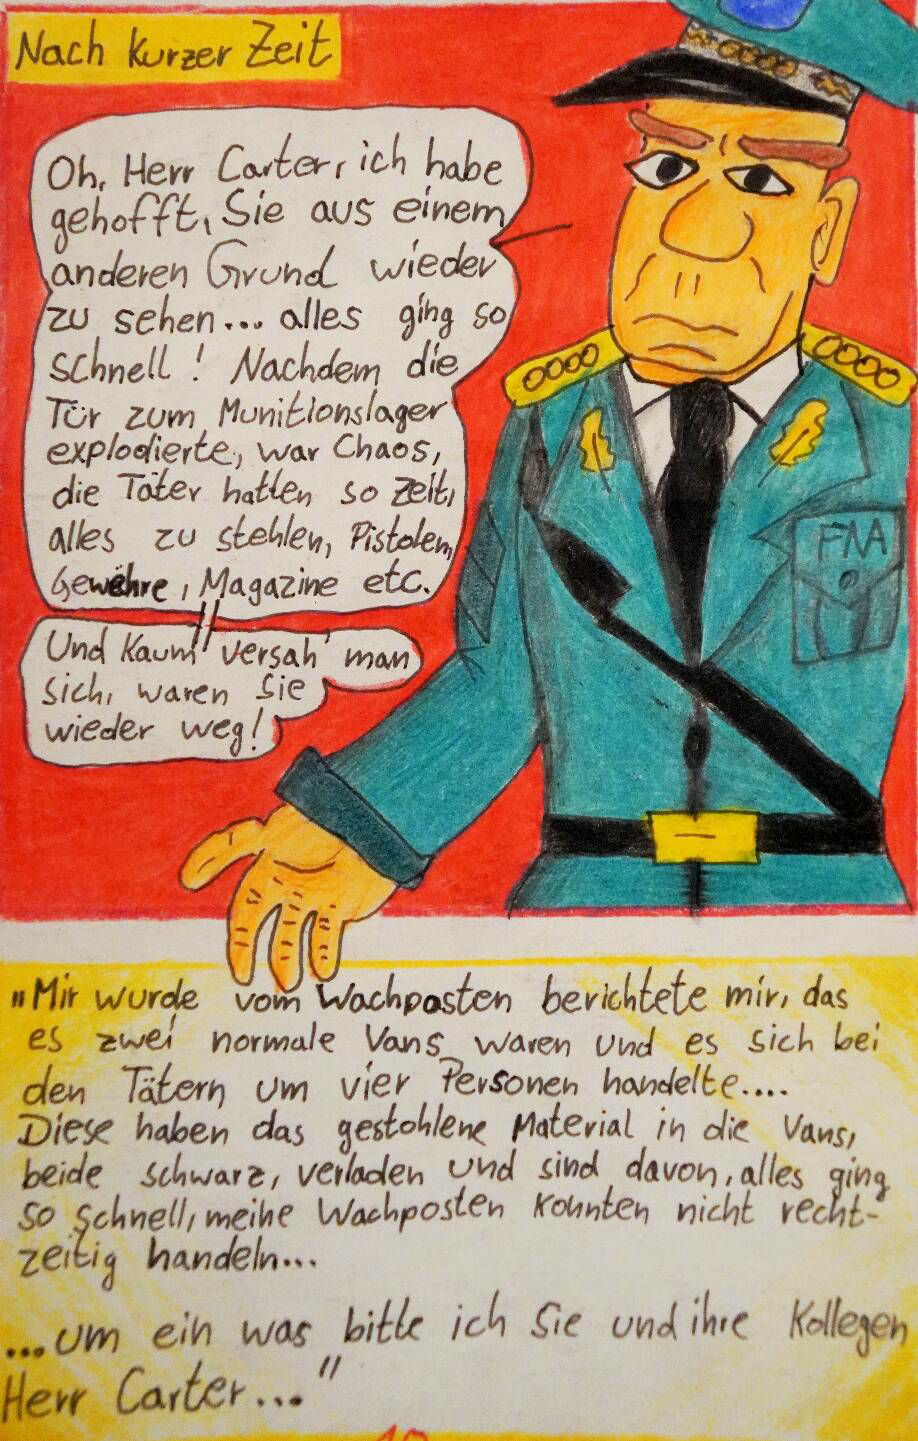 Nach kurzer Zeit
Oh, Herr Carter, ich habe
gehofft, Sie aus einem
anderen Grund wieder
zu sehen... alles ging so
schnell! Nachdem die
Tür zum Munitionslager
explodierte, war Chaos,
die Täter hatten so Zeit,
alles zu stehlen, Pistolen,
Gewehre, Magazine etc.
Und kaum versah' man
sich, waren sie
wieder weg!
FNA
"Mir wurde vom Wachposten berichtete mir, das
es zwei normale Vans waren und es sich bei
den Tätern um vier Personen handelte....
Diese haben das gestohlene Material in die Vans,
beide schwarz, verladen und sind davon, alles ging
so schnell, meine Wachposten konnten nicht recht-
zeitig handeln...
...um ein was bitte ich Sie und ihre Kollegen
Herr Carter..."